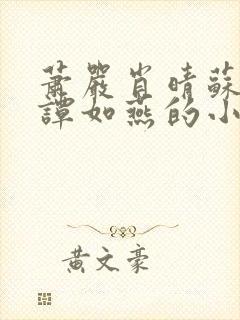 蕭嚴肖晴蘇
譚如燕的小
黃文豪